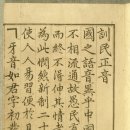 訓民正音
國之語音異乎中國
不相流通故愚民
而終不得伸其情
為此憫然新制二十
使人人易習便於日
ㄱ牙音如君字初發